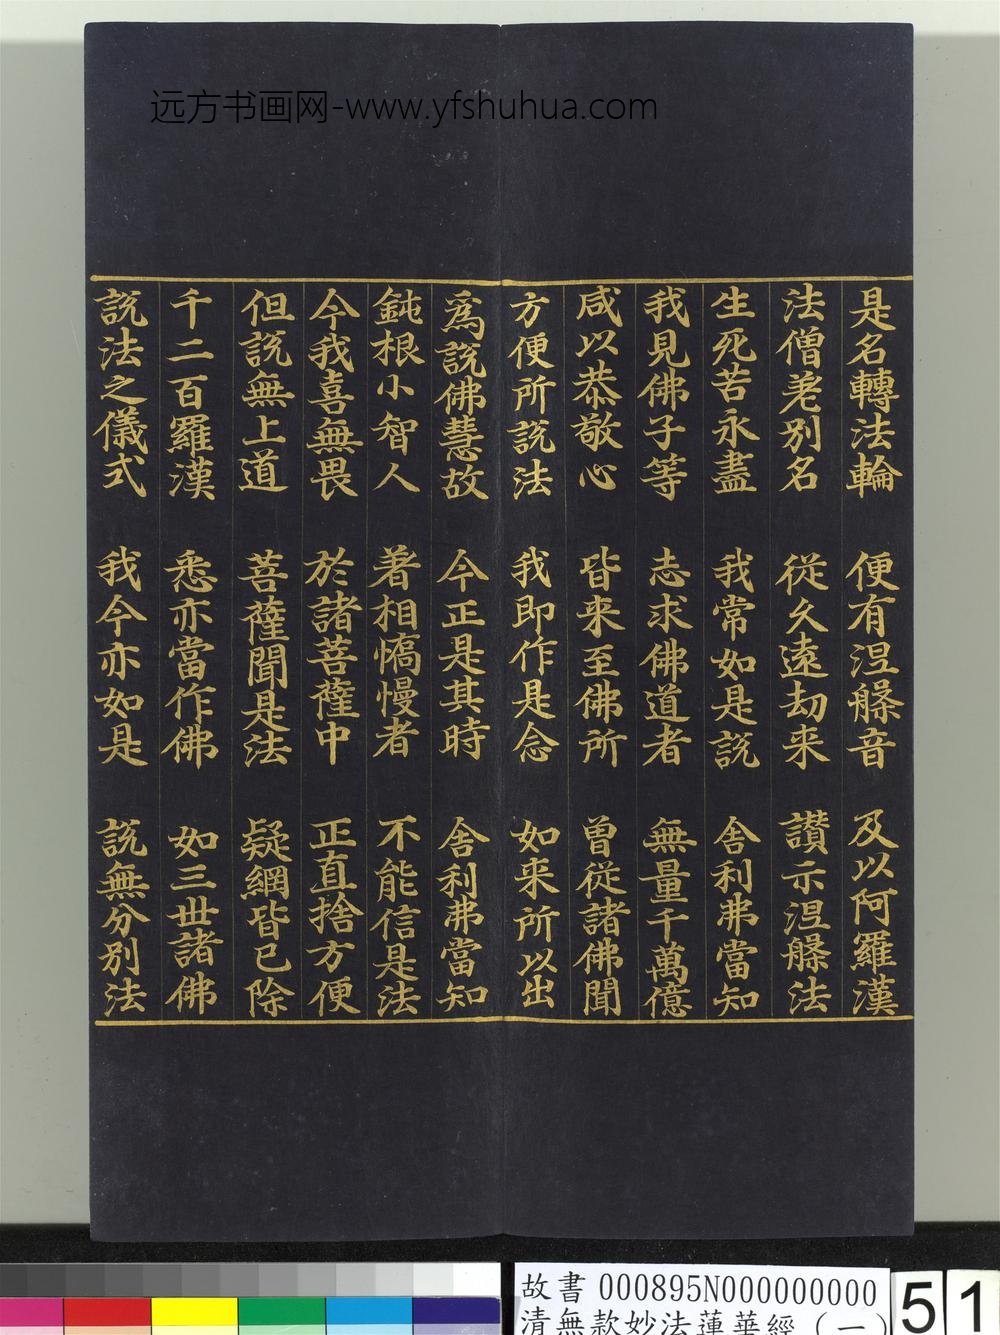 远方书画网-www.yfshuhua.com
是名轉法輪 便有涅槃音 及以阿羅漢
法僧差別名 從久遠劫来 讚示涅槃法
生死苦永盡 我常如是說 舍利弗當知
我見佛子等 志求佛道者 無量千萬億
咸以恭敬心 皆来至佛所 曾從諸佛聞
方便所說法 我即作是念 如来所以出
為說佛慧故 今正是其時 舍利弗當知
鈍根小智人 著相憍慢者 不能信是法
今我喜無畏 於諸菩薩中 正直捨方便
但說無上道 菩薩聞是法 疑網皆已除
千二百羅漢 悉亦當作佛 如三世諸佛
說法之儀式 我今亦如是 說無分別法
故書 000895N000000000
清無款妙法蓮華經(一)
51